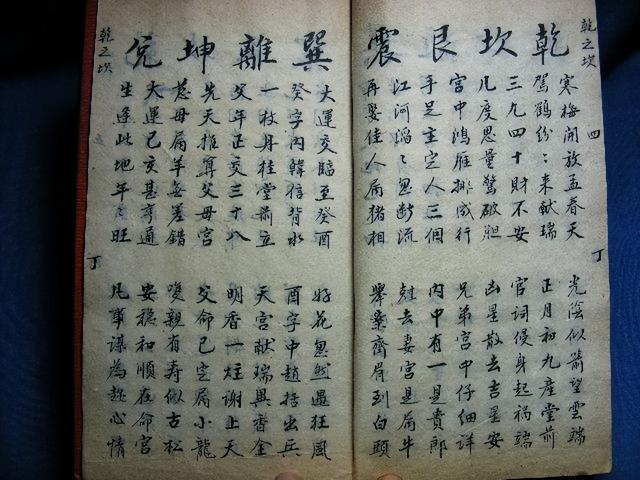 乾之坎
四
丁
乾坎艮震
寒梅開放孟春天
光陰似箭望雲端
駕鶴紛〻來献瑞
正月初九產堂前
三九四十財不安
官詞侵身起禍端
几度思量驚破胆
凶星散去吉星安
宮中鴻雁排成行
兄弟宮中仔細詳
手足主定人三個
內中有一是貴郎
江河滔〻忽断流
尅去妻宮是属牛
再娶佳人属猪相
舉案齊眉到白頭
巽離坤兌
大運交臨至癸酉
好花忽然遇狂風
癸字內韓信背水
酉字中趙括出兵
一枝丹桂堂前立
天宮献瑞異香金
父年正交三十八
明香一炷謝上天
先天推算父母宮
父命已定属小龍
慈母属羊無差錯
雙親有寿似古松
大運己亥甚亨通
安穩和順在命宮
生逢此地年〻旺
凡事謀為趁心情
乾之坎
丁